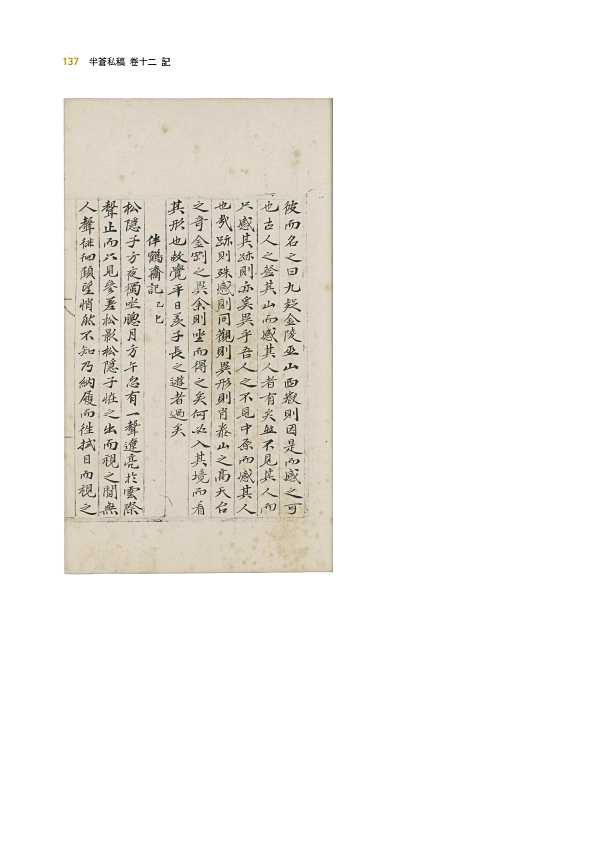 137 半蒼私稿 卷十二 記
彼而名之曰九疑金陵巫山西嶽則因是而感之可
也古人之登其山而感其人者有矣無不見其人而
只感其跡則亦奚異乎吾人之不見中原而感其人
也哉跡則殊感則同觀則異形則肖泰山之高天台
之奇金剛之異余則坐而得之矣何必入其境而看
其形也故覺平日羨子長之遊者過矣
伴鶴齋記 乙巳
松隱子方夜獨坐聽月方午忽有一聲遼亮於雲際
聲止而只見參差松影松隱子恠之出而視之闃無
人聲徘徊顧望悄然不知乃納履而徃拭目而視之